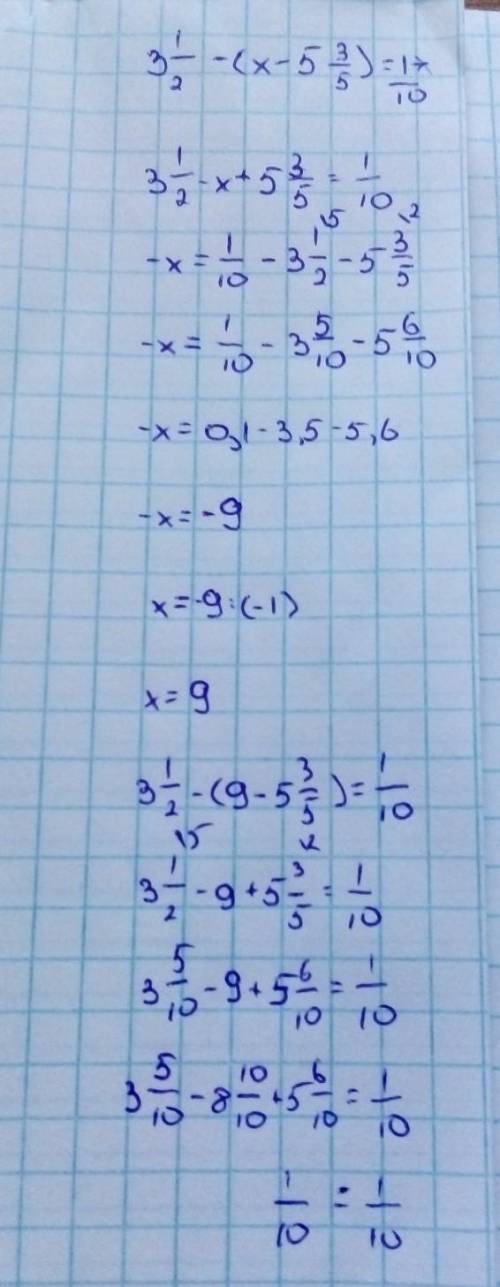 3 1/2 - (x - 5 3/5) = 1/10
3 1/2 - x + 5 3/5 = 1/10
-x = 1/10 - 3 1/2 ,5 - 5 3/5 ,2
-x = 1/10 - 3 5/10 - 5 6/10
-x = 0,1 - 3,5 - 5,6
-x = -9
x = -9 : (-1)
x = 9
3 1/2 - (9 - 5 3/5) = 1/10
3 1/2 ,5 - 9 + 5 3/5 ,2 = 1/10
3 5/10 - 9 + 5 6/10 = 1/10
3 5/10 - 8 10/10 + 5 6/10 = 1/10
1/10 = 1/10